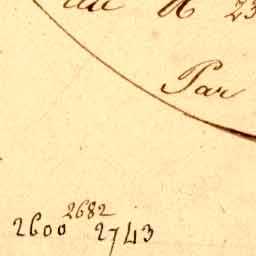 23
Par
2682
2600 2743